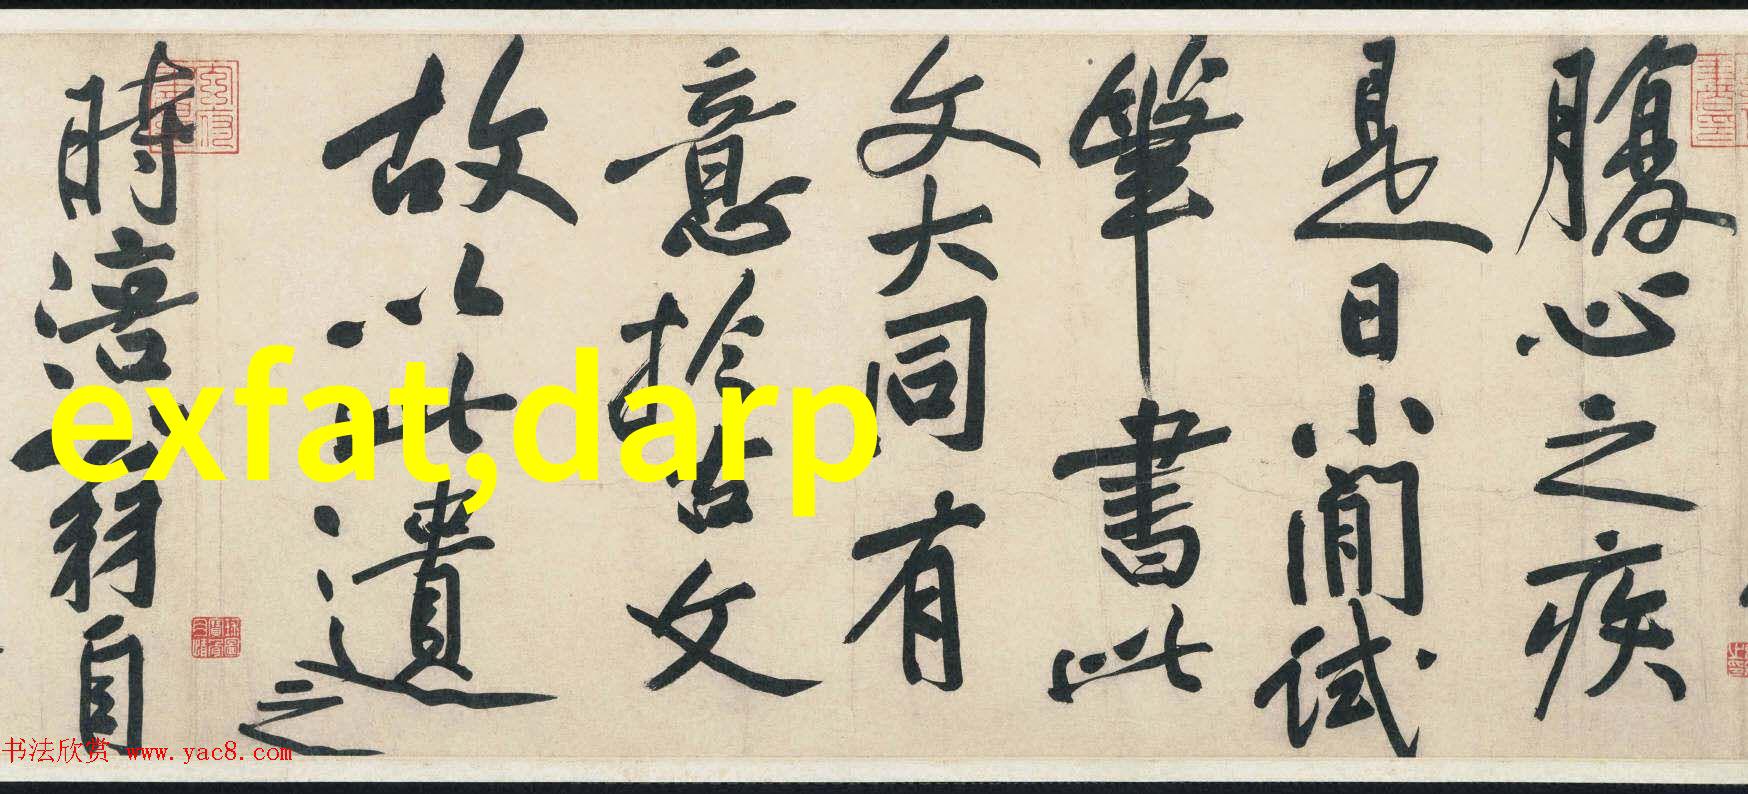 腹心之疾
是日小閒試
筆書此
文大同有
意扵古文
故以此遺之
時涪翁自
exfat,darp
书法欣赏 www.yac8.com